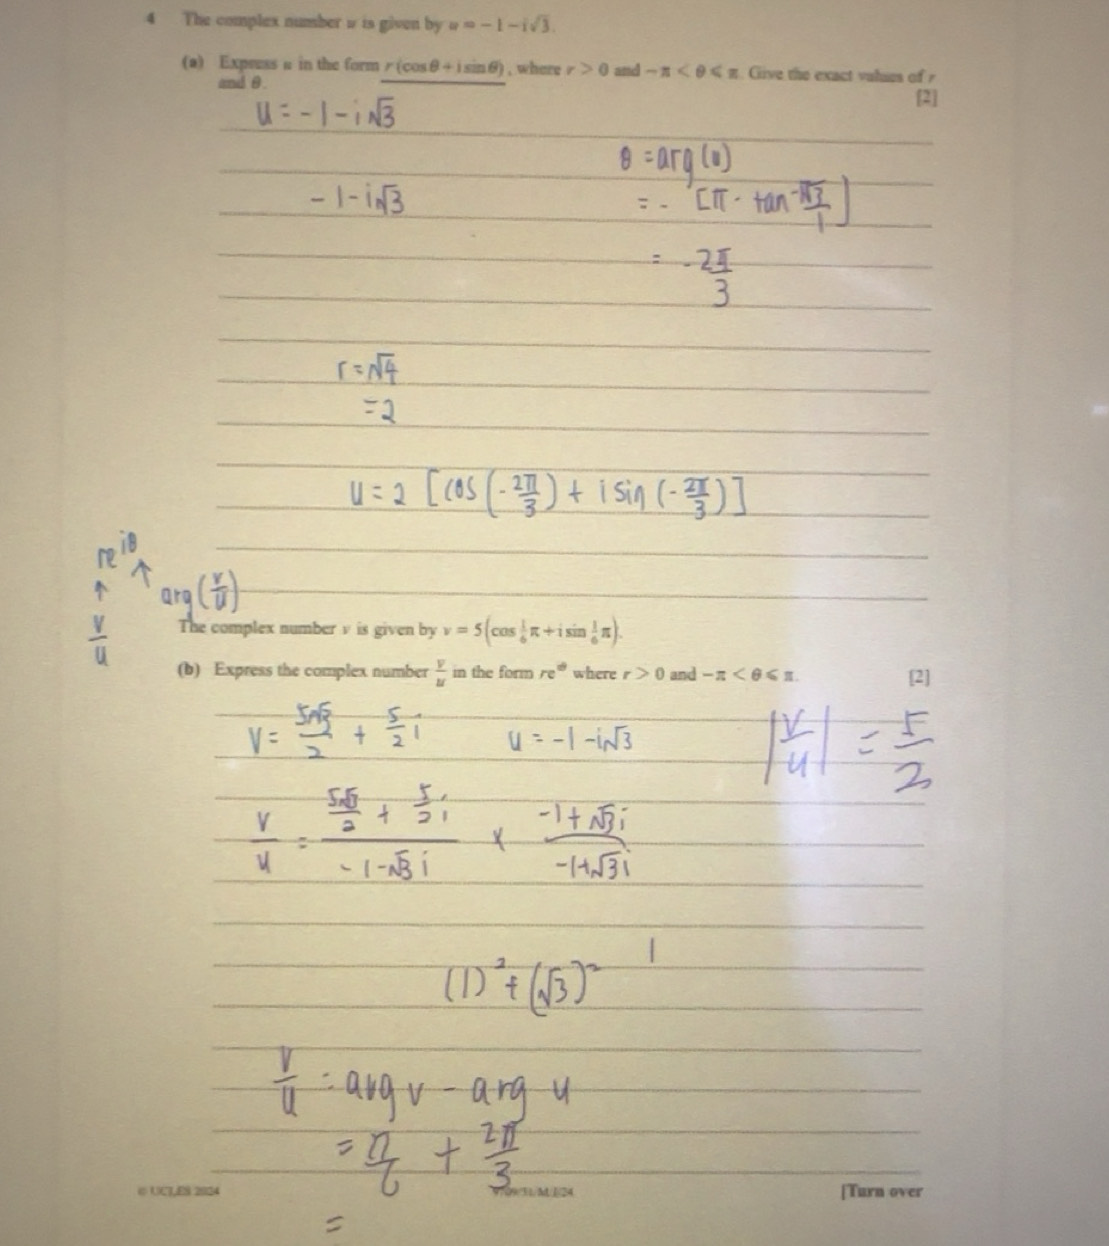 4 The complex number u is given by u = −1 − i√3.
(a) Express u in the form r(cos θ + i sin θ), where r > 0 and −π < θ ⩽ π. Give the exact values of r
and θ. [2]
u = -1 - i√3
θ = arg(u)
-1 - i√3
= - [π - tan⁻¹ √3/1]
= -2π/3
r = √4
= 2
u = 2 [cos(-2π/3) + i sin(-2π/3)]
re^iθ
↑ ↑
arg(v/u)
v/u
The complex number v is given by v = 5(cos 1/6 π + i sin 1/6 π).
(b) Express the complex number v/u in the form re^iθ where r > 0 and −π < θ ⩽ π. [2]
V = 5√3/2 + 5/2 i
u = -1 - i√3
|v/u| = 5/2
v/u = (5√3/2 + 5/2 i)/(-1 - √3 i) × (-1 + √3 i)/(-1 + √3 i)
(1)² + (√3)² 1
v/u = arg v - arg u
= π/6 + 2π/3
© UCLES 2024
[Turn over
=